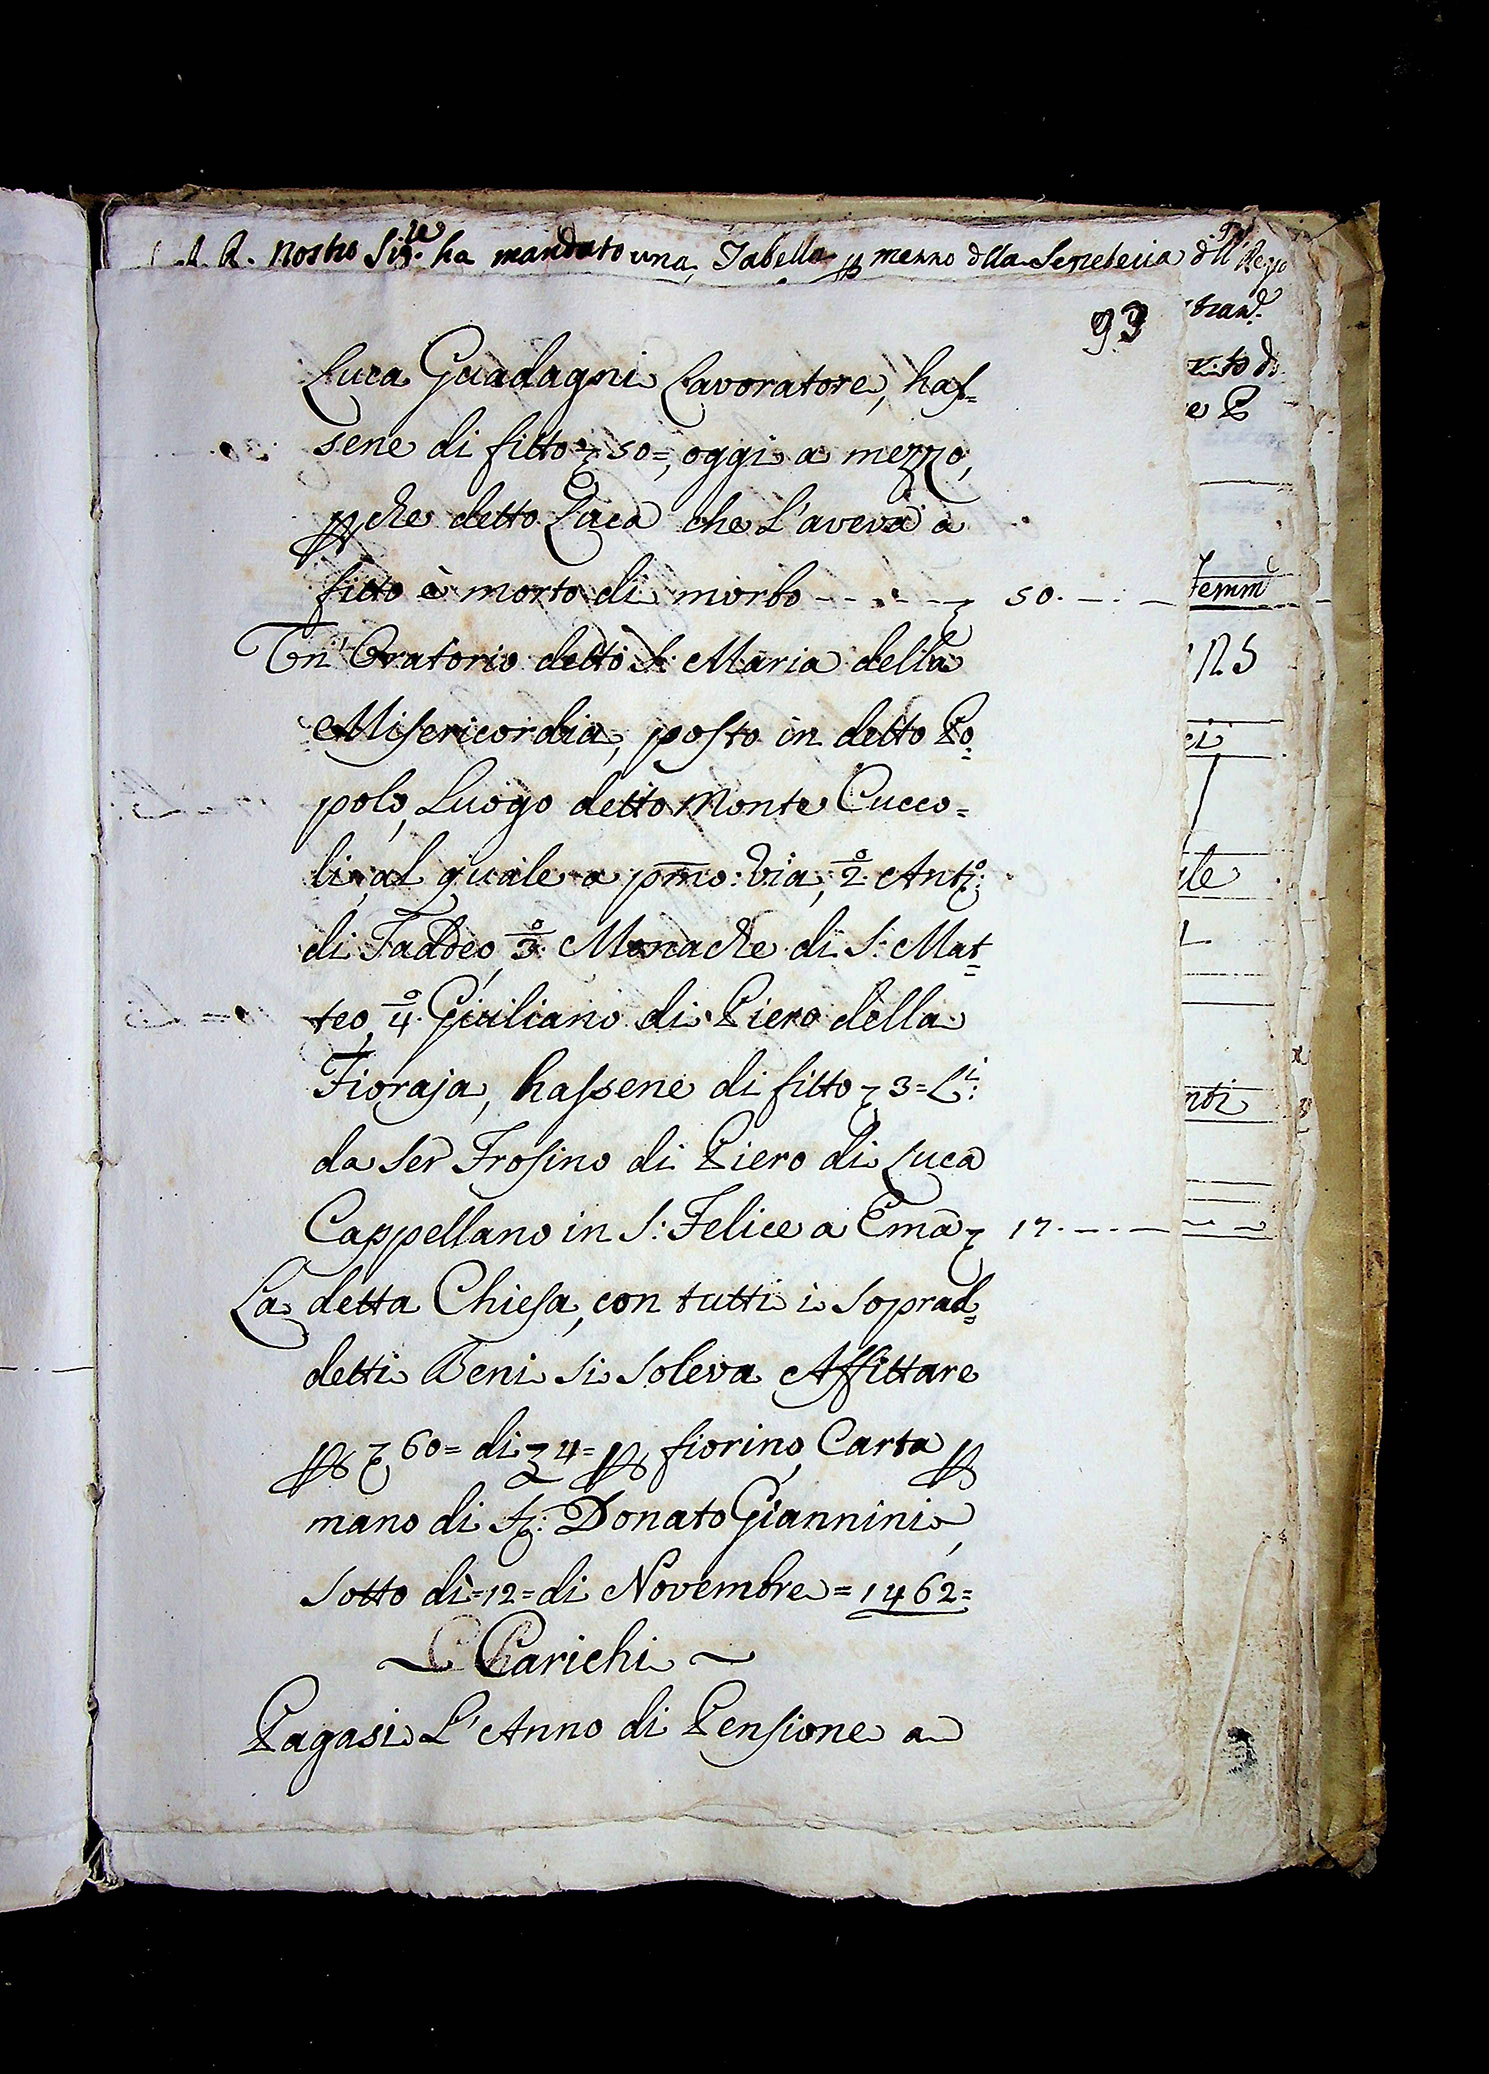 A. R. nostro Sig.re ha mandato una Tabella p mezzo dlla Segreteria dll Regio
93
Luca Guadagni Lavoratore, haʃ=
sene di fitto ʒ 50=, oggi a mezzo,
pche detto Luca che L'aveva a
fitto è morto di morbo - - . - ʒ 50. - . -
Un' Oratorio detto S: Maria della
Miʃericordia, poʃto in detto Po=
polo, Luogo detto Monte Cucco=
li, al quale a pmo: via, 2.º Antº:
di Taddeo, 3.º Monache di S: Mat=
teo, 4.º Giuliano di Piero della
Fioraja, haʃsene di fitto ʒ 3= L.i:
da Ser Froʃino di Piero di Luca
Cappellano in S: Felice a Ema ʒ 17. - . -
La detta Chieʃa, con tutti i soprad=
detti Beni si soleva Affittare
p ʒ 60= di ʒ 4= p fiorino, Carta p
mano di Sr: Donato Giannini,
sotto dì =12= di Novembre =1462=
~ Carichi ~
Pagasi L'Anno di Penʃione a
tran.
e P
femm
NS
ei
ale
nti